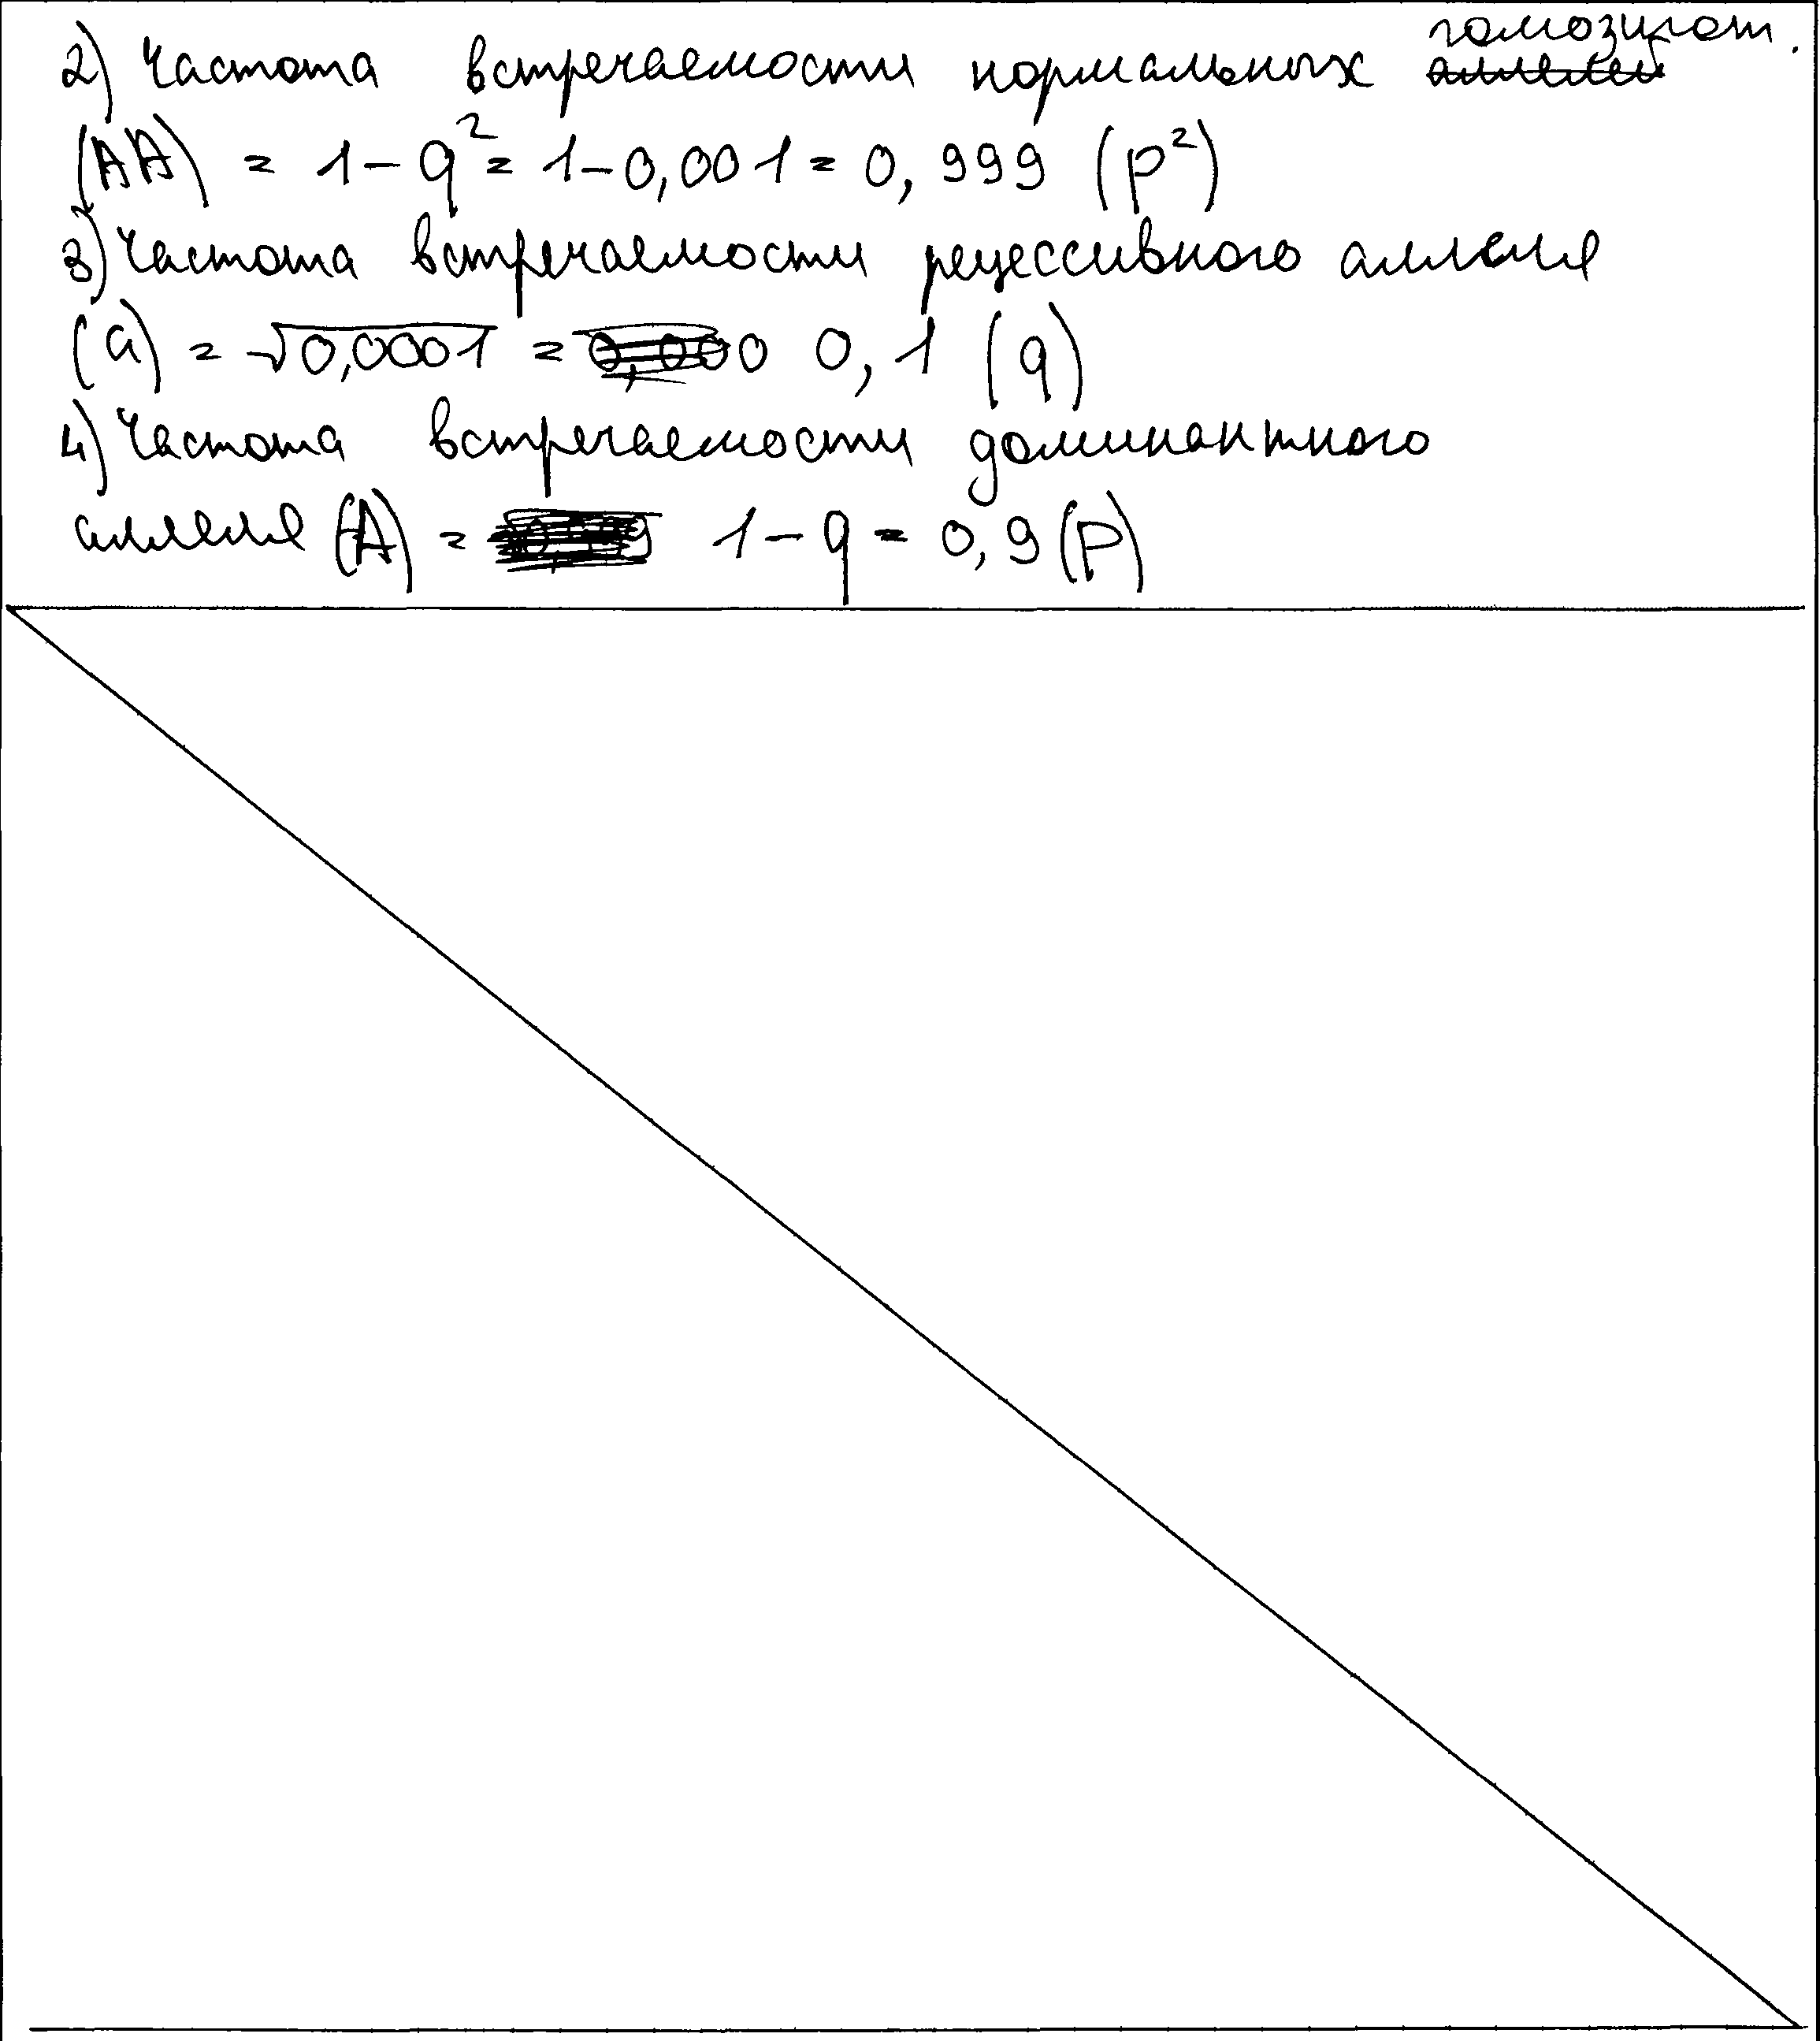 гомозигот.
2) Частота встречаемости нормальных аллелей
(AA) = 1 – q² = 1 – 0,001 = 0,999 (p²)
3) Частота встречаемости рецессивного аллеля
(a) = √0,0001 = 0,000 0,1 (q)
4) Частота встречаемости доминантного
аллеля (A) = 1 – q = 0,9 (p)